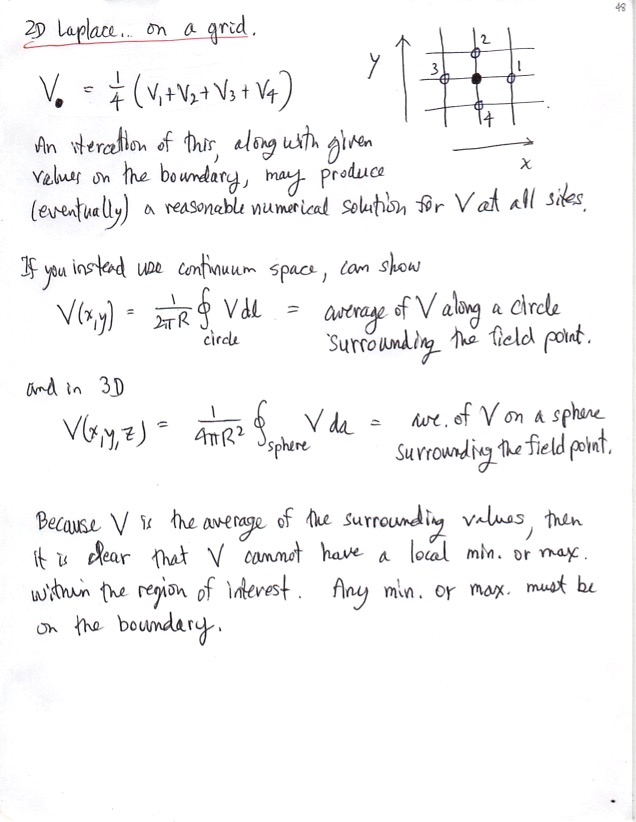 48
2D Laplace... on a grid.
V• = 1/4 (V1+V2+V3+V4)
y
x
1
2
3
4
An iteration of this, along with given
values on the boundary, may produce
(eventually) a reasonable numerical solution for V at all sites.
If you instead use continuum space, can show
V(x,y) = 1/2πR ∮circle V dl = average of V along a circle
surrounding the field point.
and in 3D
V(x,y,z) = 1/4πR² ∮sphere V da = ave. of V on a sphere
surrounding the field point.
Because V is the average of the surrounding values, then
it is clear that V cannot have a local min. or max.
within the region of interest. Any min. or max. must be
on the boundary.